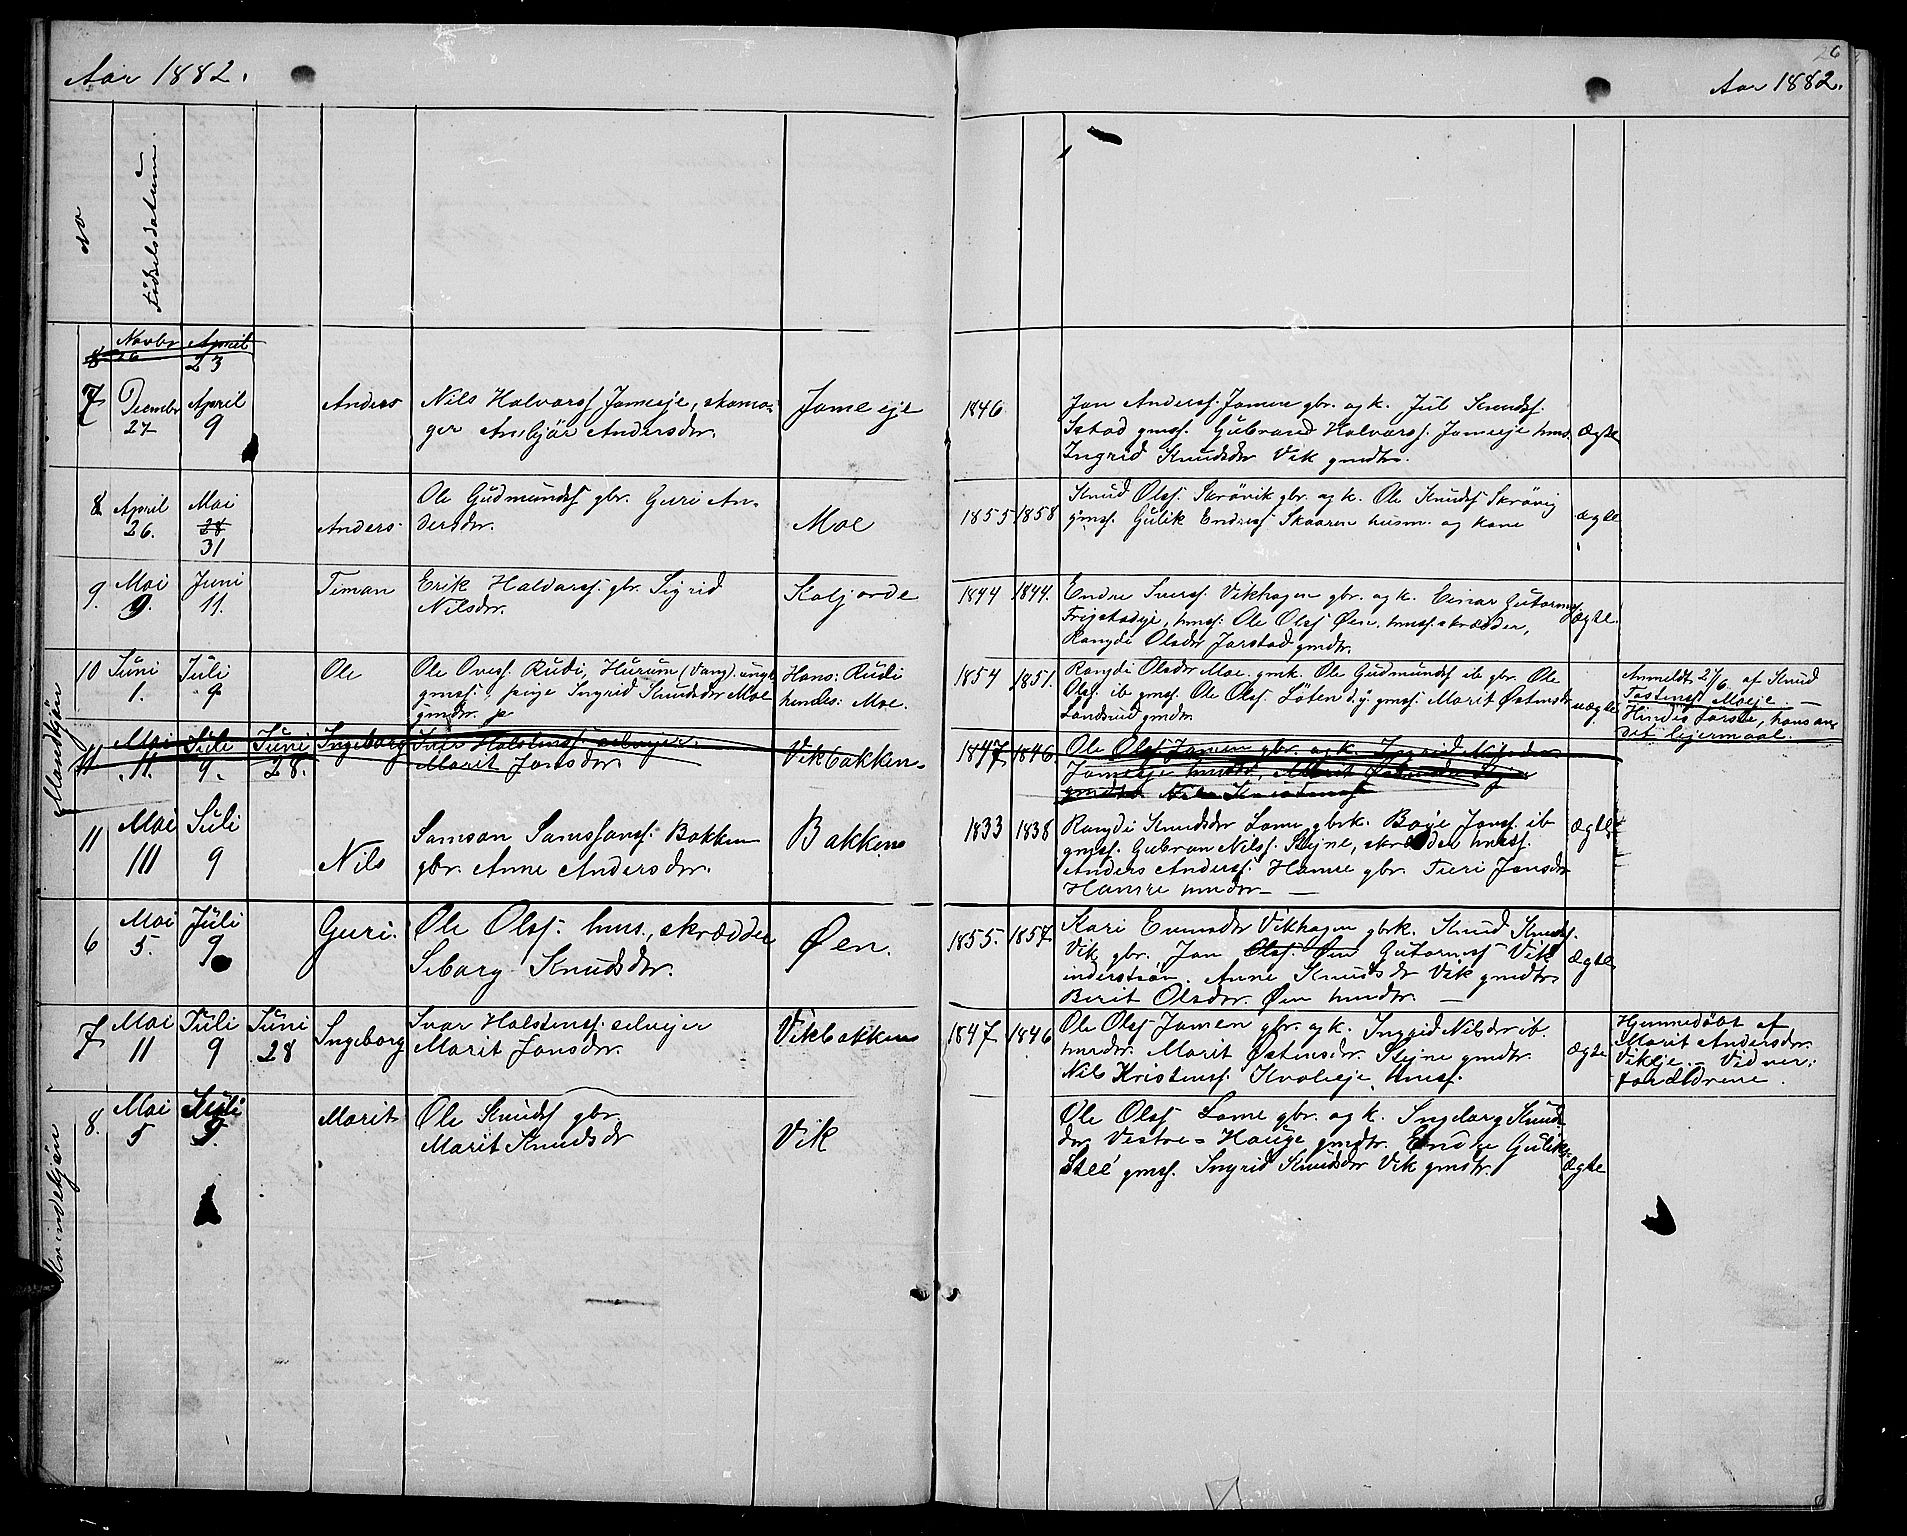 Aar 1882.
26
Aar 1882.
No
Födselsdatum.
Mandkjön
8 Novbr 26 April 23
7 Decembr 27 April 9 Anders Nils Halvorss. Jomeeje, skoma=
ger Ambjör Andersdr. Jomeeje
1846 Jon Anderss. Jomen gbr. og k. Jul Knudss.
gmss. Gulbrand Halvorss. Jomeeje hms. ægte
Ingrid Knudsdr Vik gmdtr.
8 April 26. Mai 28 31 Anders Ole Gudmundss gbr. Guri An=
dersdr. Moe
1855 1858 Knud Olss. Skrövik gbr. og k. Ole Knudss Skrövig
gmss. Gulik Endress Skaaren husm. og kone ægte
9. Mai 9. Juni 11. Timan Erik Haldorss. gbr. Sigrid
Nilsdr. Koljorde
1844 1844. Endre Iverss. Vikhagen gbr. og k. Einar Gutormss.
hmss. Ole Olss Øen, hmss. skrædder, ægte.
Rangdi Olsdr Jorstad gmdtr.
10 Juni 1. Juli 9 Ole Ole Oves. Rudi, Hurum (Vang) ungk
gmss. pige Ingrid Knudsdr Moe
gmdr. Hans: Rudi
hendes: Moe.
1854 1851. Rangdi Olsdr Moe gmk. Ole Gudmundss ib gbr. Ole
Olss. ib gmss. Ole Olss. Löten gmss. Marit Østensdr
gmdtr. uægte
Anmeldt 27/6 af Knud
Tostenss. Moeje —
Hendes første, hans an=
det lejermaal.
11 Mai 11. Juli 9. Juni 28. Ingeborg Iver Holstenss selvejer.
Marit Jonsdr. Vikbakken
1847 1846 Ole Olss Jomen gbr. og k. Ingrid Nilsdr
Jomeeje hmdtr. Marit Østensdr Stejne
gmdtr Nils Kristenss
11 Mai 11 Juli 9 Nils Samson Samssonss. Bakken
gbr. Anne Andersdr. Bakken
1833 1838 Rangdi Knudsdr Lome gbrk. Boye Jonss. ib
gmss. Gulbran Nilss. Stejne, skrædder hmss.
Anders Anderss. Hamre gbr. Turi Jonsdr
Hamre hmdtr — ægte
Kvindekjön
6 Mai 5. Juli 9 Guri. Ole Olss. hms., skrædder
Siborg Knudsdr. Øen.
1855. 1857. Kari Vikhagen gbrk. Knud Knudss.
Vik gbr. Jon Olss. Øen Gutormss Vik
inderst Anne Knudsdr Vik gmdtr
Berit Olsdr. Øen hmdtr. — ægte
7 Mai 11 Juli 9 Juni 28 Ingeborg Ivar Holstenss. selvejer
Marit Jonsdr. Vikbakken
1847 1846 Ole Olss Jomen gbr. og k. Ingrid Nilsdr ib.
hmdtr. Marit Østensdr. Stejne gmdtr.
Nils Kristenss. Kvaleeje hmss. ægte
Hjemmedöbt af
Marit Andersdr.
Vikeje. — Vidner:
forældrene.
8. Mai 5 Juli 9. Marit Ole Knudss gbr.
Marit Knudsdr Vik
Øle Olss Lome gbr. og k. Ingeborg Knuds=
dr. Vestre=Hauge gmdtr. Endre Guliks.
gmss. Ingrid Knudsdr Vik gmdtr. ægte